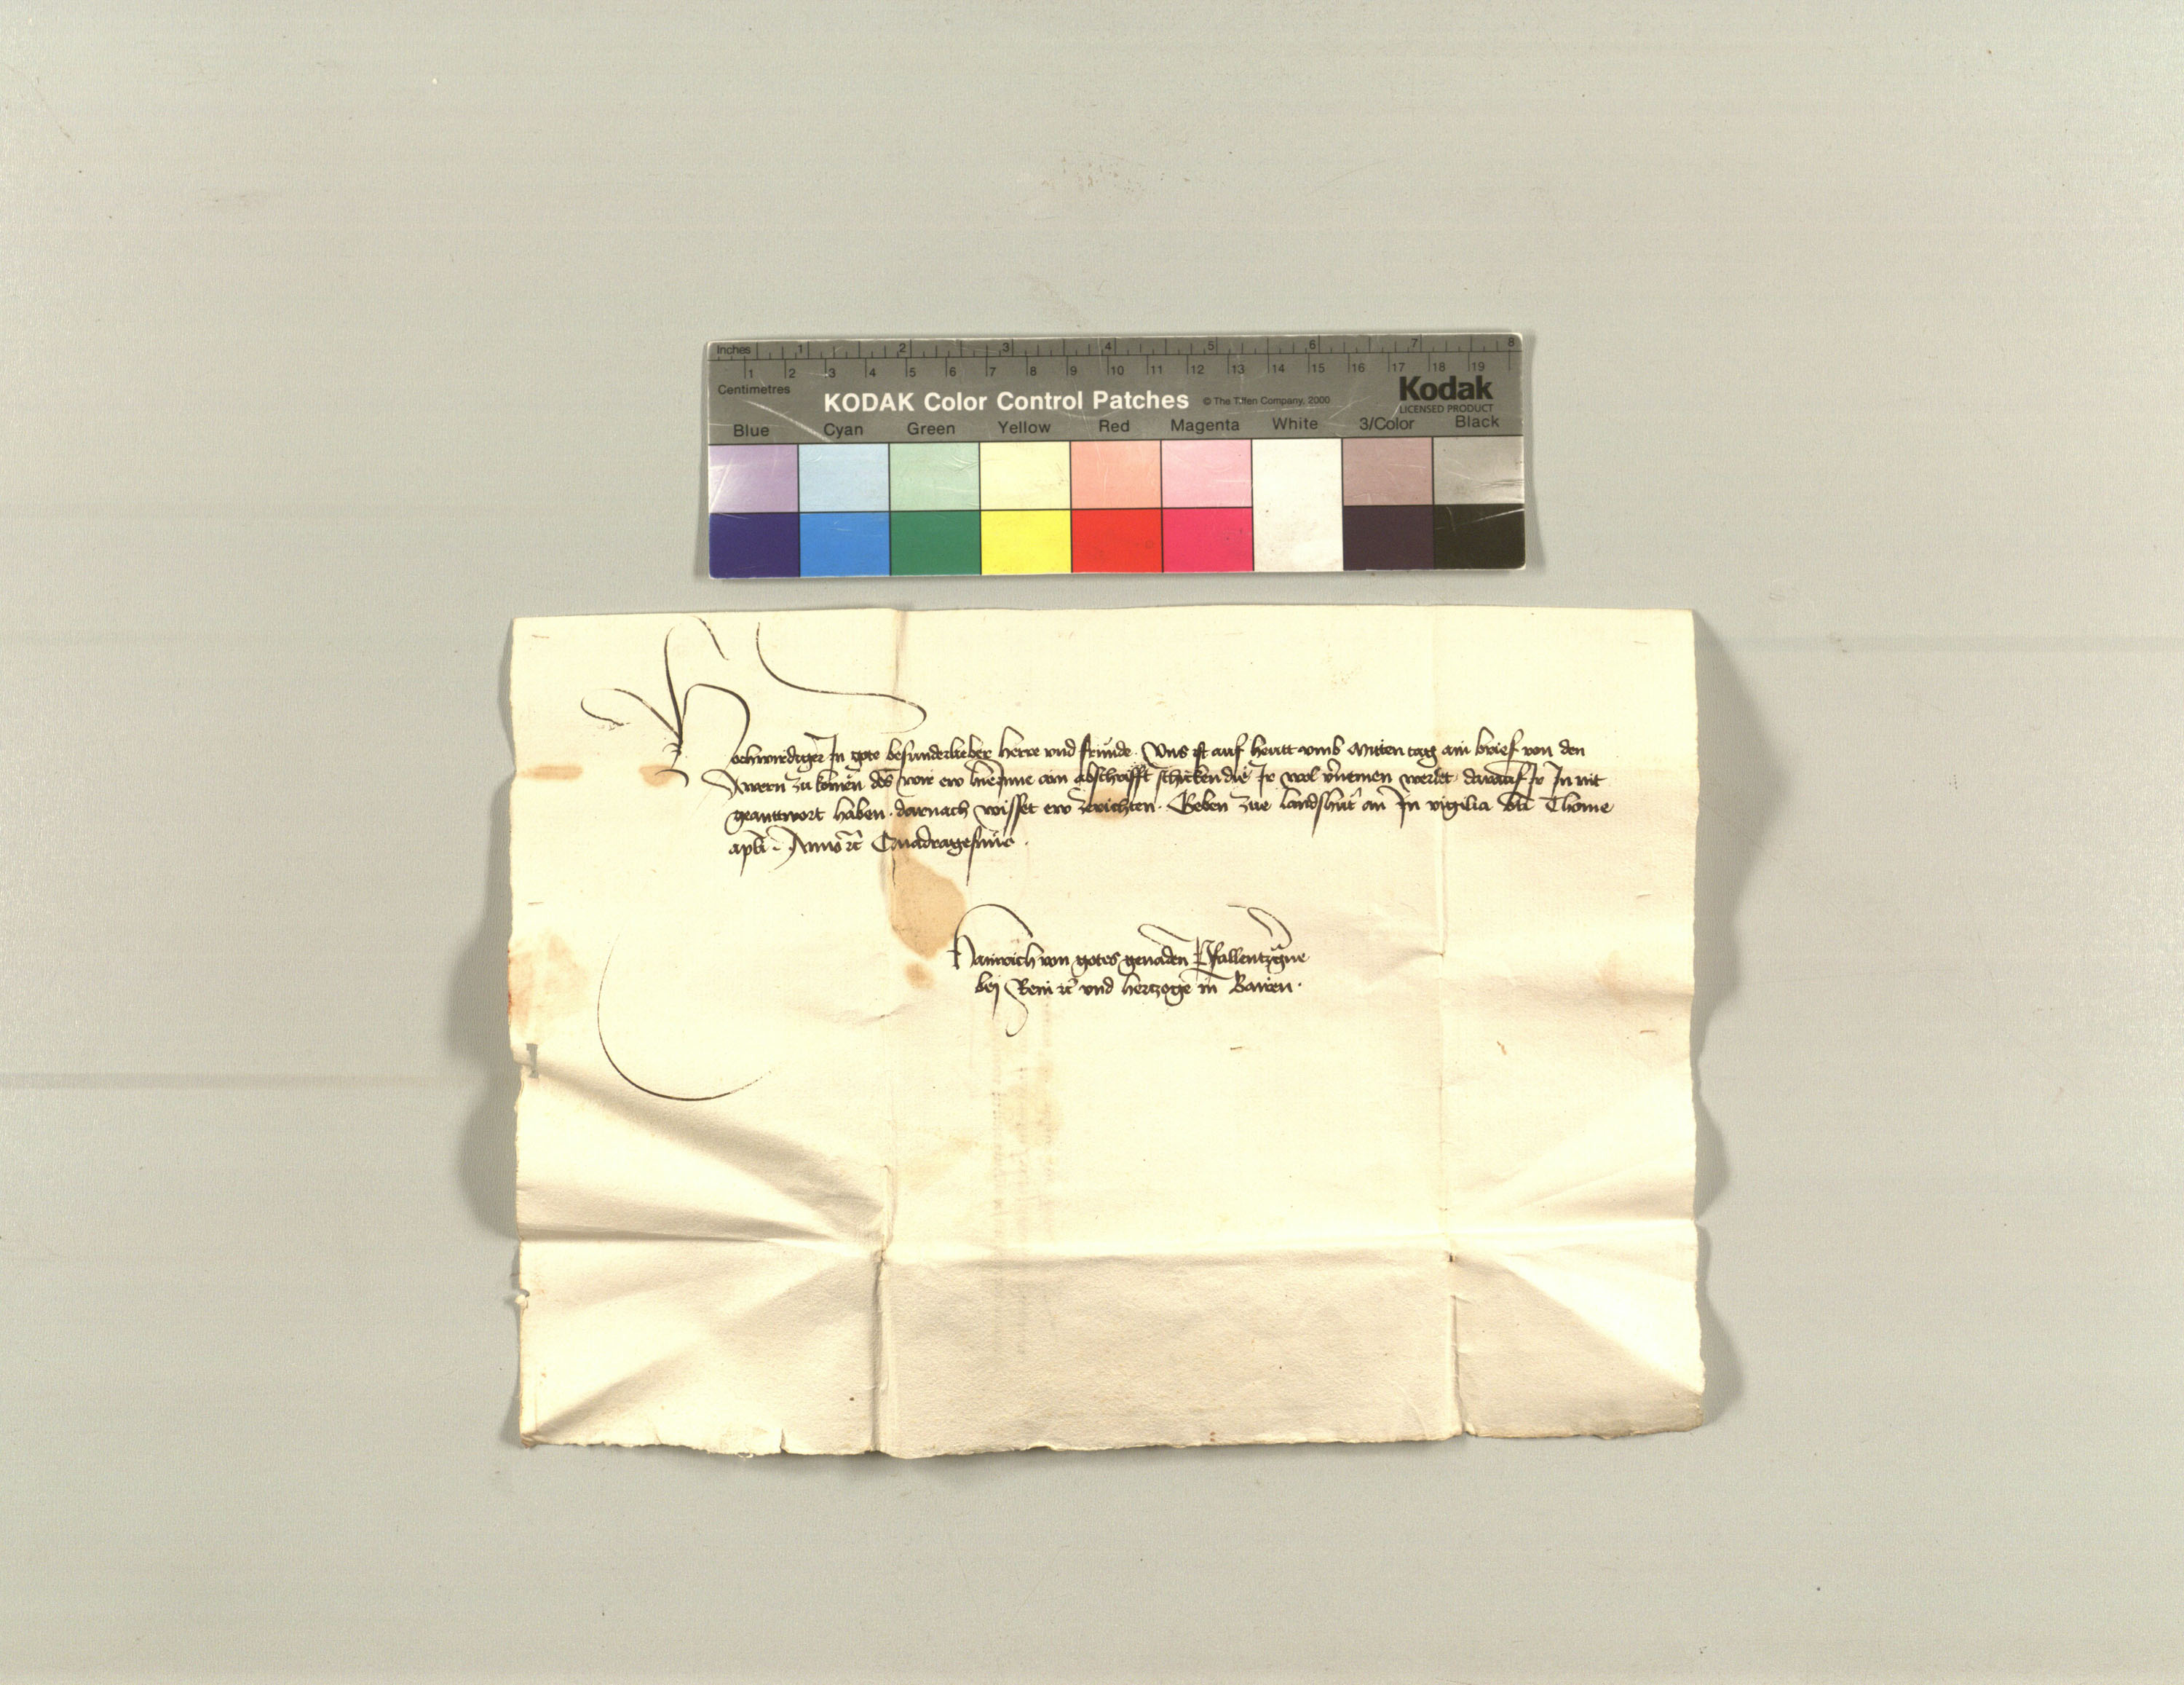 Inches 1 2 3 4 5 6 7 8
1 2 3 4 5 6 7 8 9 10 11 12 13 14 15 16 17 18 19
Centimetres
KODAK Color Control Patches © The Tiffen Company, 2000 Kodak
LICENSED PRODUCT
Blue Cyan Green Yellow Red Magenta White 3/Color Black
Hochwirdiger In gote besunderlieber herre und frunde. Uns ist auf heutt umb mitten tag ain brief von den
zu komen des wir ew hieInne ain abschrifft schicken die Ir wol vernemen werdet darauf Ir In nit
geanttwort haben. darnach wisset ew zerichten. Geben zue landshut an In vigilia bti Thome
apli. Anno rc Quadragesimo.
Hainrich von gotes genaden Pfallentzgrue
bej Rein rc und hertzoge in Bairen.